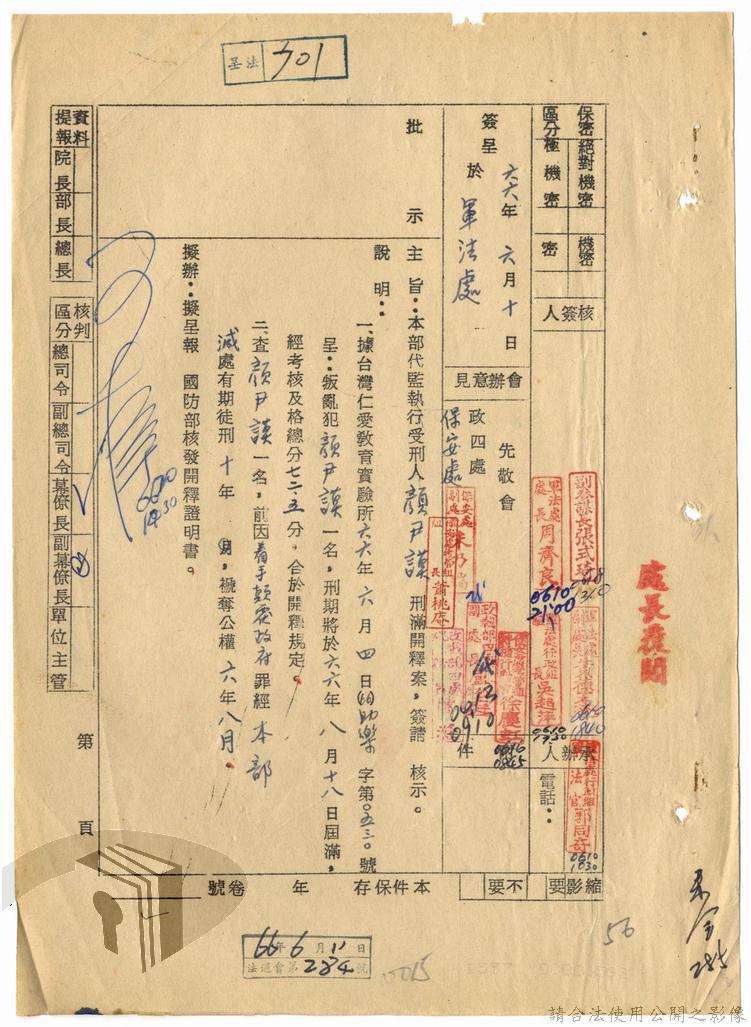 呈法 401
保密區分
絕對機密
極機密
機密
密
核簽人
承辦人
電話：
縮影
要
不要
簽呈 六六年六月十日
於 軍法處
會辦意見
先敬會
政四處
保安處
件
批示
主旨：本部代監執行受刑人顏尹謨刑滿開釋案，簽請 核示。
說明：
一、據台灣仁愛教育實驗所六六年六月四日助樂字第〇五三〇號
呈：叛亂犯顏尹謨一名，刑期將於六六年八月十八日屆滿，
經考核及格總分七二、五分，合於開釋規定。
二、查顏尹謨一名，前因着手顛覆政府罪經本部
減處有期徒刑十年 月，褫奪公權六年八月。
擬辦：擬呈報 國防部核發開釋證明書。
本件保存 年
卷號
資料提報
院長
部長
總長
核判區分
總司令
副總司令
幕僚長
副幕僚長
單位主管
第 頁
處長 周濟良
0610
2100
吳超萍
郭同奇
0610
1830
蕭桃庵
0910
處長
66年6月11日
284號
56
285
請合法使用公開之影像